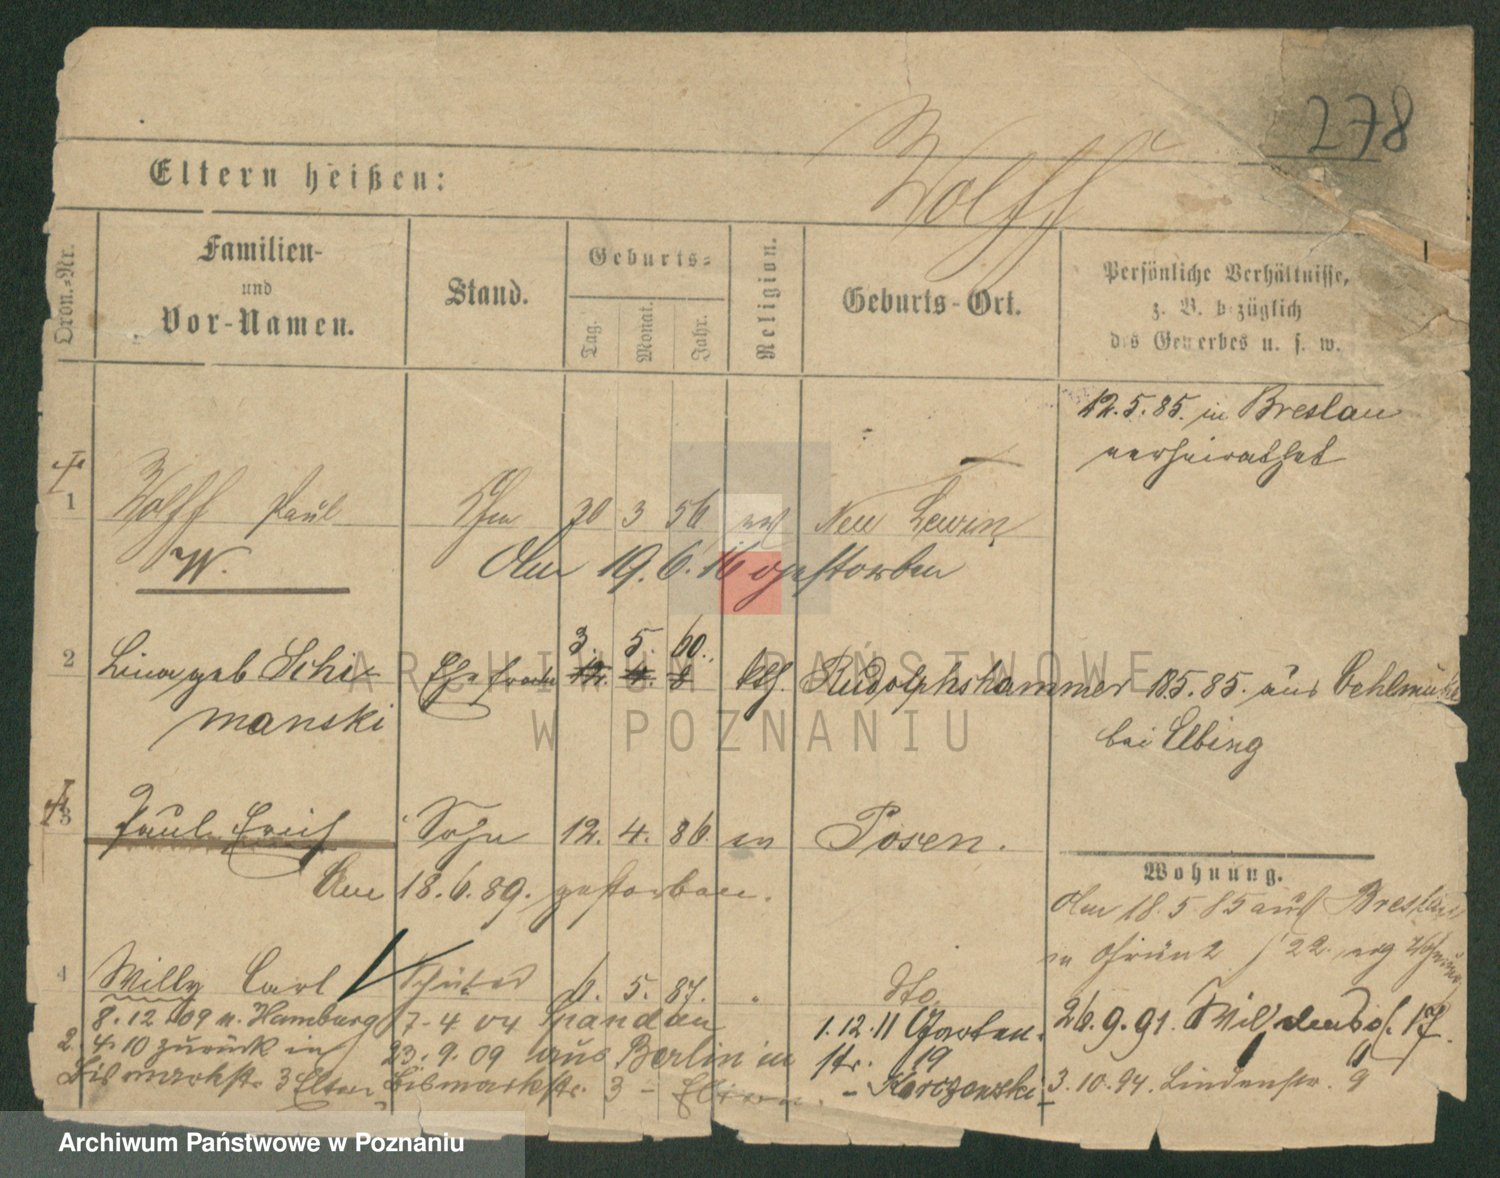 278
Wolff
Eltern heißen:
Ordn.-Nr.
Familien-
und
Vor-Namen.
Stand.
Geburts-
Tag.
Monat.
Jahr.
Religion.
Geburts-Ort.
Persönliche Verhältnisse,
z. B. bezüglich
des Gewerbes u. s. w.
12.5.85. in Breslau
verheirathet
1 Wolff Paul 30 3 56 Neu Lewin
W. Am 19.6.16 gestorben
3. 5. 60.
2 Lina geb Schi- Ehefrau 12. 4. kth. Rudolphshammer 18.5.85. aus
manski bei Elbing
3 Paul Erich Sohn 12. 4. 86. Posen.
Am 18.6.89. gestorben.
Wohnung.
Am 18.5.85 aus Breslau
4 Willy Carl 6. 5. 87. " dto
8.12.09 n. Hamburg 7-4 04 Spandau 1.12.11 Garten- 26.9.91. 17.
2.4.10 zurück in 23.9.09 aus Berlin in str. 19
Bismarckstr 3 Eltern Bismarckstr. 3 - Eltern. - Karczewski - 3.10.94. Lindenstr. 9
ARCHIWUM PAŃSTWOWE
W POZNANIU
Archiwum Państwowe w Poznaniu